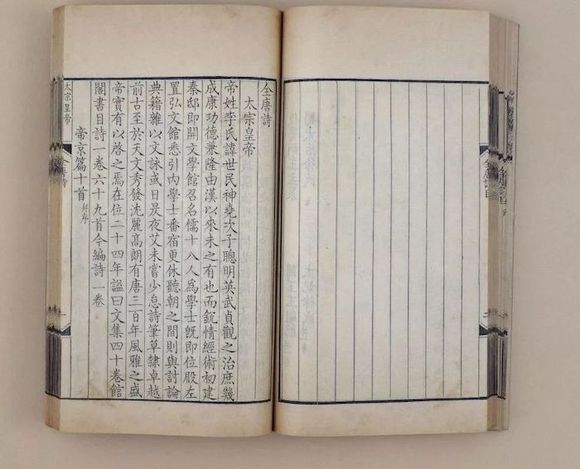 全唐詩
太宗皇帝
帝姓李氏諱世民神堯次子聰明英武貞觀之治庶幾
成康功德兼隆由漢以來未之有也而銳情經術初建
秦邸即開文學館召名儒十八人爲學士既即位殿左
置弘文館悉引內學士番宿更休聽朝之間則與討論
典籍雜以文詠或日昃夜艾未嘗少怠詩筆草隸卓越
前古至於天文秀發沈麗高朗有唐三百年風雅之盛
帝實有以啓之焉在位二十四年謚曰文集四十卷館
閣書目詩一卷六十九首今編詩一卷
帝京篇十首 并序
太宗皇帝